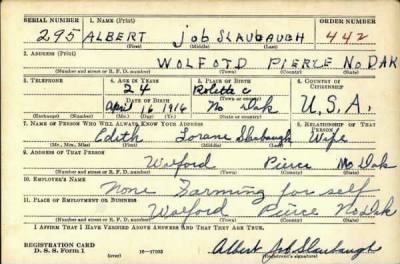 SERIAL NUMBER 1. NAME (Print) ORDER NUMBER
295 ALBERT Job SLAUBAUGH 442
(First) (Middle) (Last)
2. ADDRESS (Print)
WOLFOTD PIERCE No DAK
(Number and street or R. F. D. number) (Town) (County) (State)
3. TELEPHONE 4. AGE IN YEARS 5. PLACE OF BIRTH 6. COUNTRY OF CITIZENSHIP
24 Rolette C
DATE OF BIRTH (Town or county)
April 16 1916 No Dak U.S.A.
(Exchange) (Number) (Mo.) (Day) (Yr.) (State or country)
7. NAME OF PERSON WHO WILL ALWAYS KNOW YOUR ADDRESS 8. RELATIONSHIP OF THAT PERSON
Edith Lorane Slaubaugh Wife
(Mr., Mrs., Miss) (First) (Middle) (Last)
9. ADDRESS OF THAT PERSON
Wolford Pierce No Dak
(Number and street or R. F. D. number) (Town) (County) (State)
10. EMPLOYER'S NAME
None Farming for self
11. PLACE OF EMPLOYMENT OR BUSINESS
Wolford Pierce No Dak
(Number and street or R. F. D. number) (Town) (County) (State)
I AFFIRM THAT I HAVE VERIFIED ABOVE ANSWERS AND THAT THEY ARE TRUE.
REGISTRATION CARD
D. S. S. Form 1 (over) 16—17105 Albert Job Slaubaugh
(Registrant's signature)